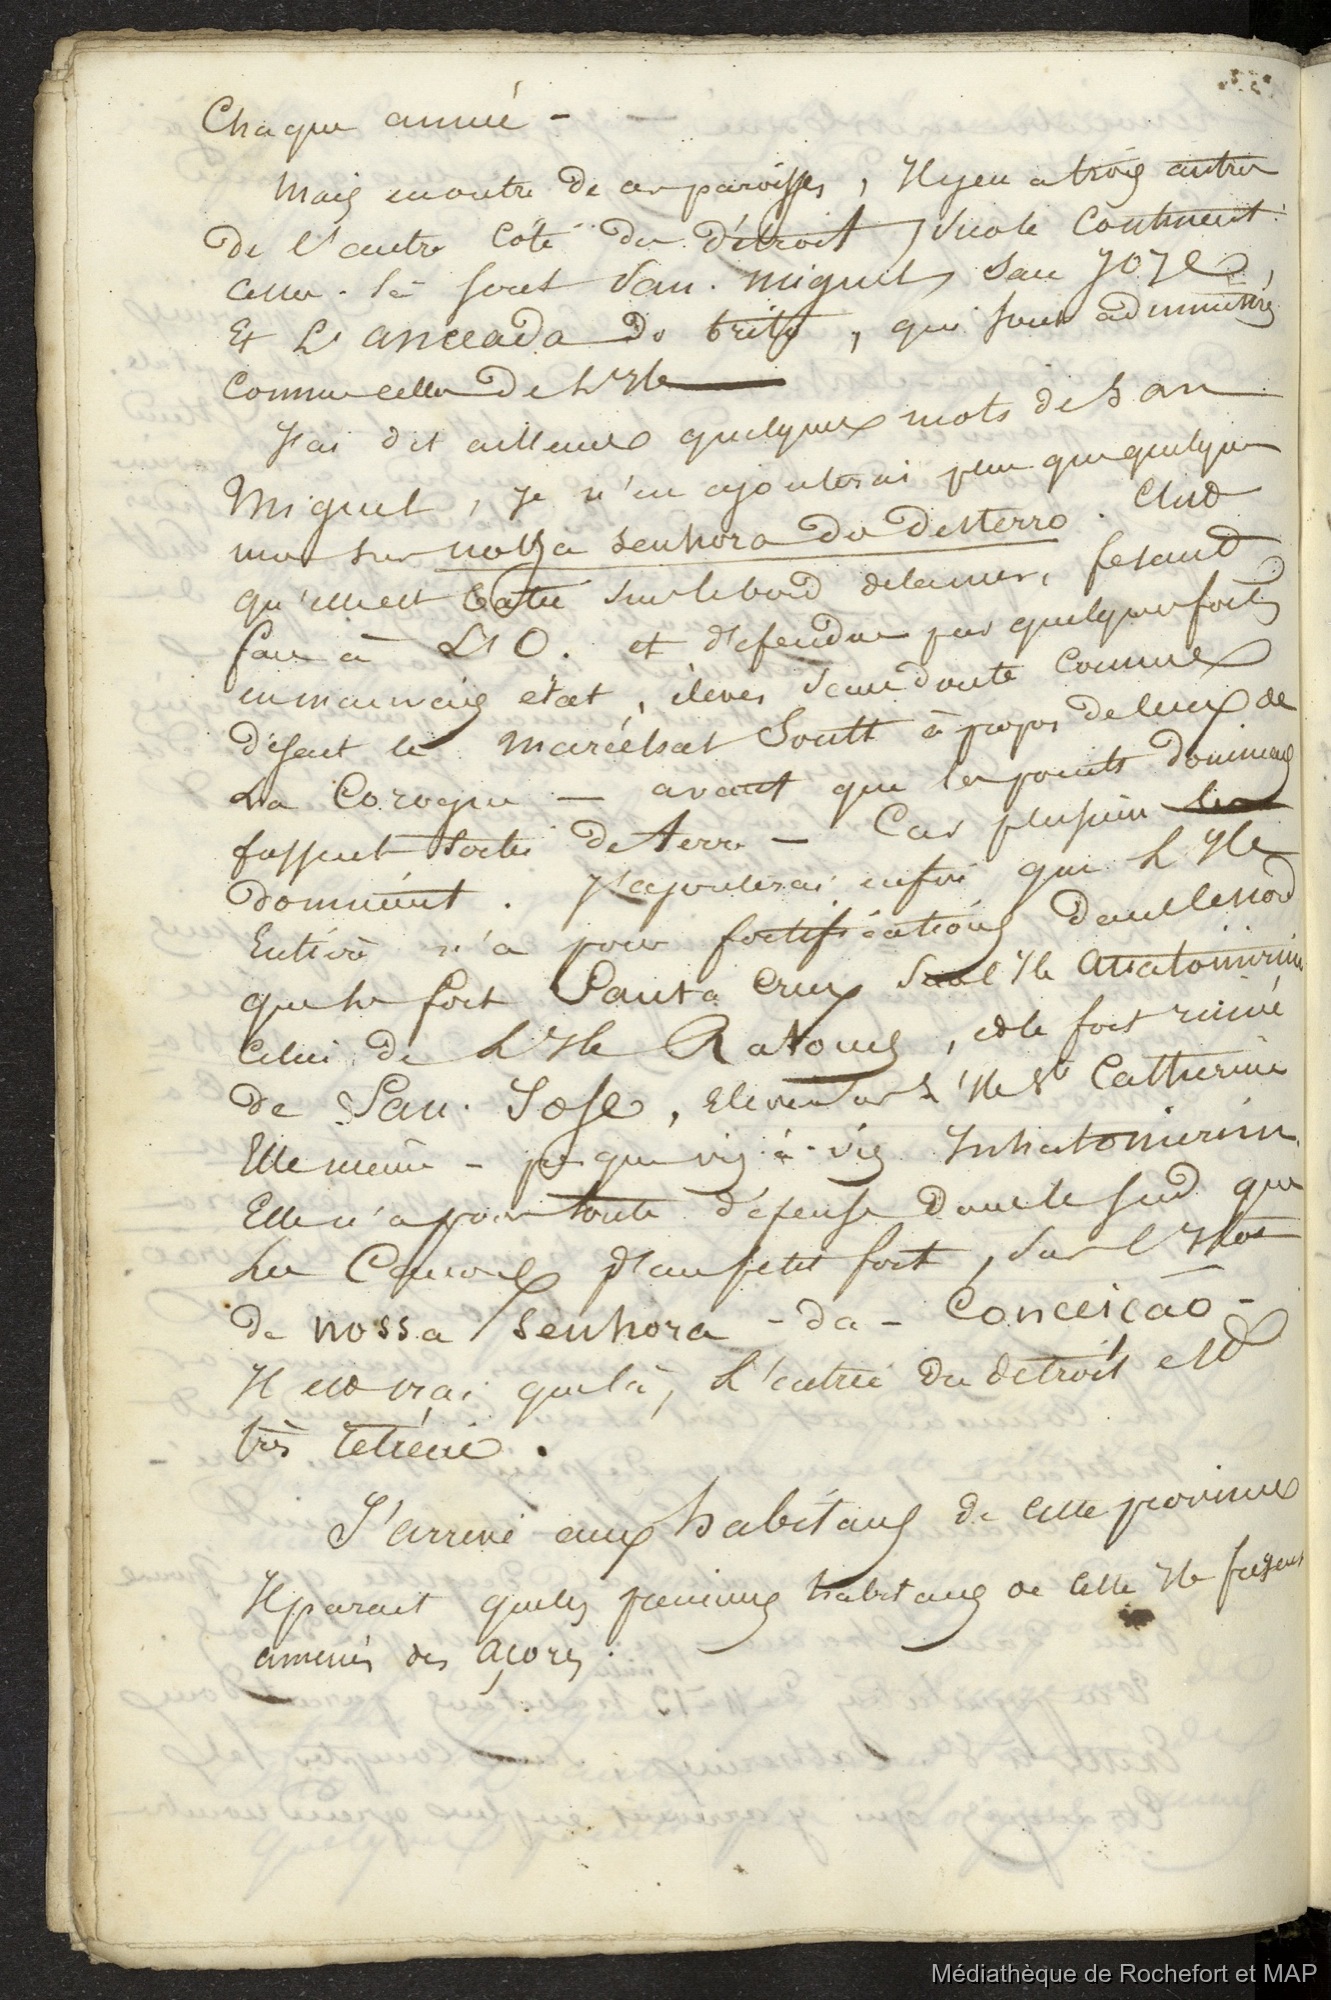 Chaque année -
Mais en outre de ces paroisses, Il y en a trois autres
de l'autre Coté du détroit, sur le Continent.
Celles-là sont San. Miguel, San Joze,
Et L'anceada do brito, qui sont administrés
Comme celles de L'Ile
J'ai dit ailleurs quelques mots de San
Miguel, je n'en ajouterai plus que quelques
uns sur nossa senhora do desterro. C'est
qu'elle est batie sur le bord de la mer, fesant
face à L'O. et défendue par quelques forts
en mauvais état, élevés sans doute comme
disait le Maréchal Soult à propos de ceux de
La Corogne — avant que les points dominans
fussent sortis de terre — Car plusieurs les
dominent. J'ajouterai enfin que L'Ile
Entière n'a pour fortifications dans le nord
que le fort Santa Cruz sur l'Ile Anatomirim
Celui de L'Ile Ratones, et le fort ruiné
de San. Jose, élevé sur L'Ile Ste Catherine
Elle même - presque vis-à-vis Inhatomirim.
Elle n'a pour toute défense dans le sud que
les Canons d'un petit fort, sur l'Ilot
de nossa senhora - da - Conceicaõ -
Il est vrai que là, L'entrée du détroit est
très
J'arrive aux habitans de cette province
Il parait que les premiers habitans de cette Ile furent
amenés des Açores.
Médiathèque de Rochefort et MAP